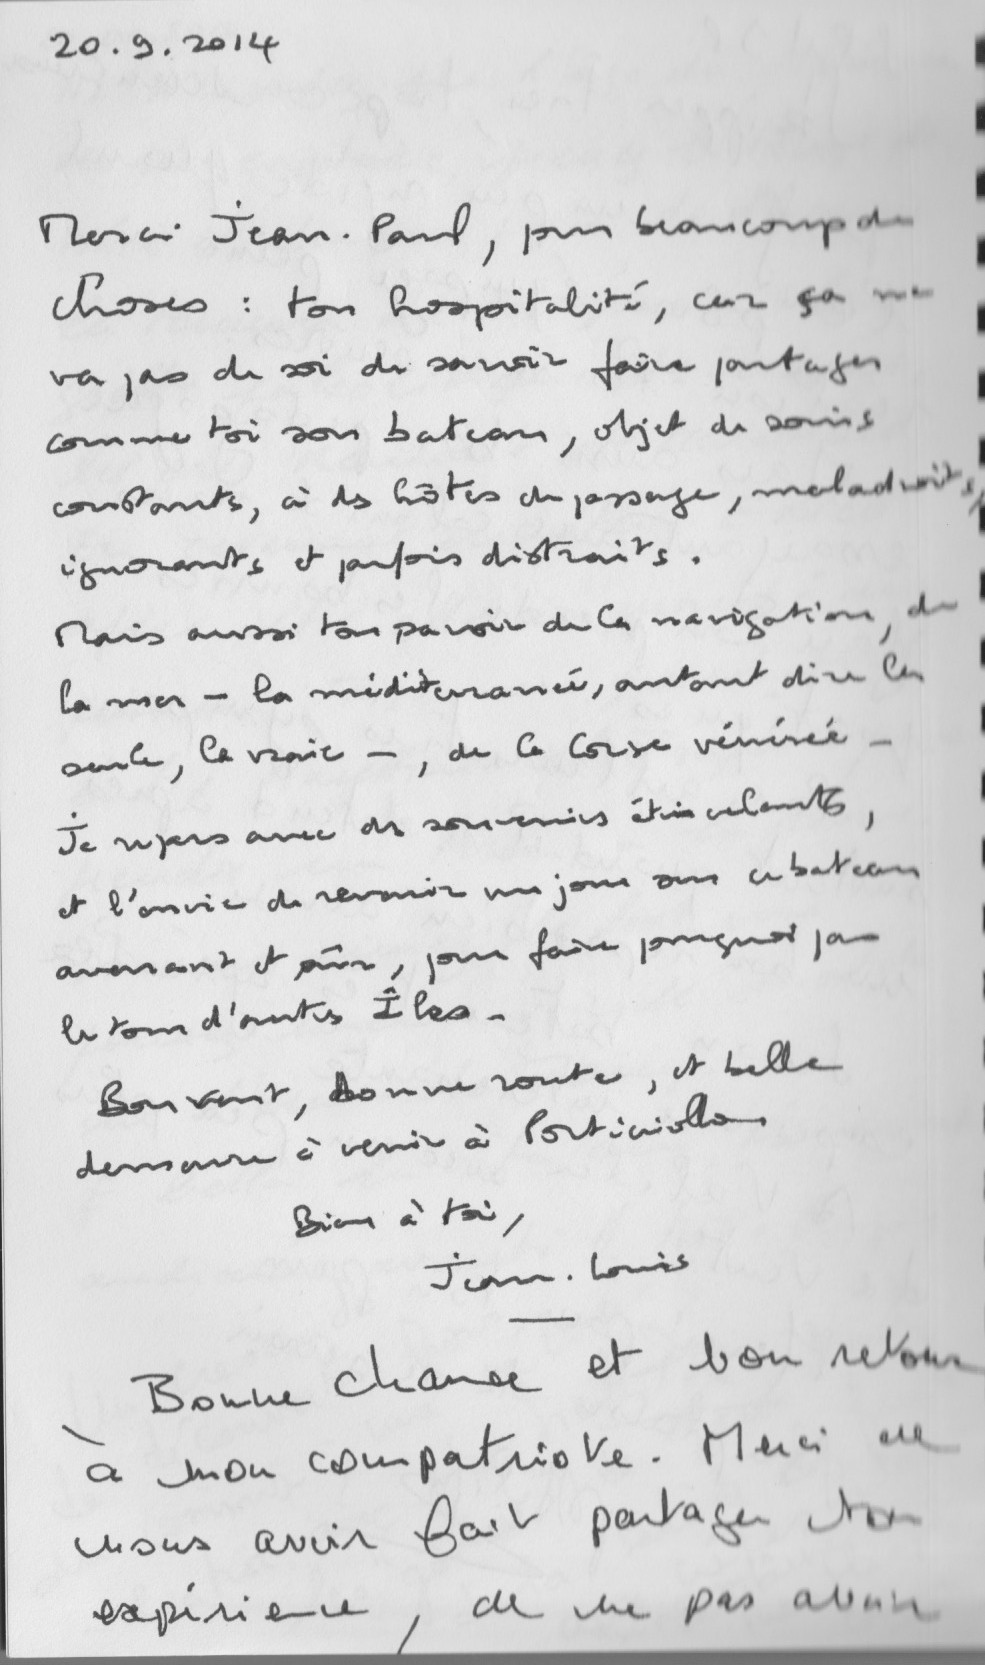 20.9.2014
Merci Jean-Paul, pour beaucoup de
choses : ton hospitalité, car ça ne
va pas de soi de savoir faire partager
comme toi son bateau, objet de soins
constants, à des hôtes de passage, maladroits,
ignorants et parfois distraits.
Mais aussi ton savoir de la navigation, de
la mer – la méditerranée, autant dire la
seule, la vraie –, de la Corse vénérée –
Je repars avec des souvenirs étincelants,
et l'envie de revenir un jour sur ce bateau
avenant et sûr, pour faire pourquoi pas
le tour d'autres Îles –
Bon vent, bonne route, et belle
demeure à venir à Porticciollo
Bien à toi,
Jean-Louis
Bonne chance et bon retour
à mon compatriote. Merci de
nous avoir fait partager ton
expérience, de ne pas avoir